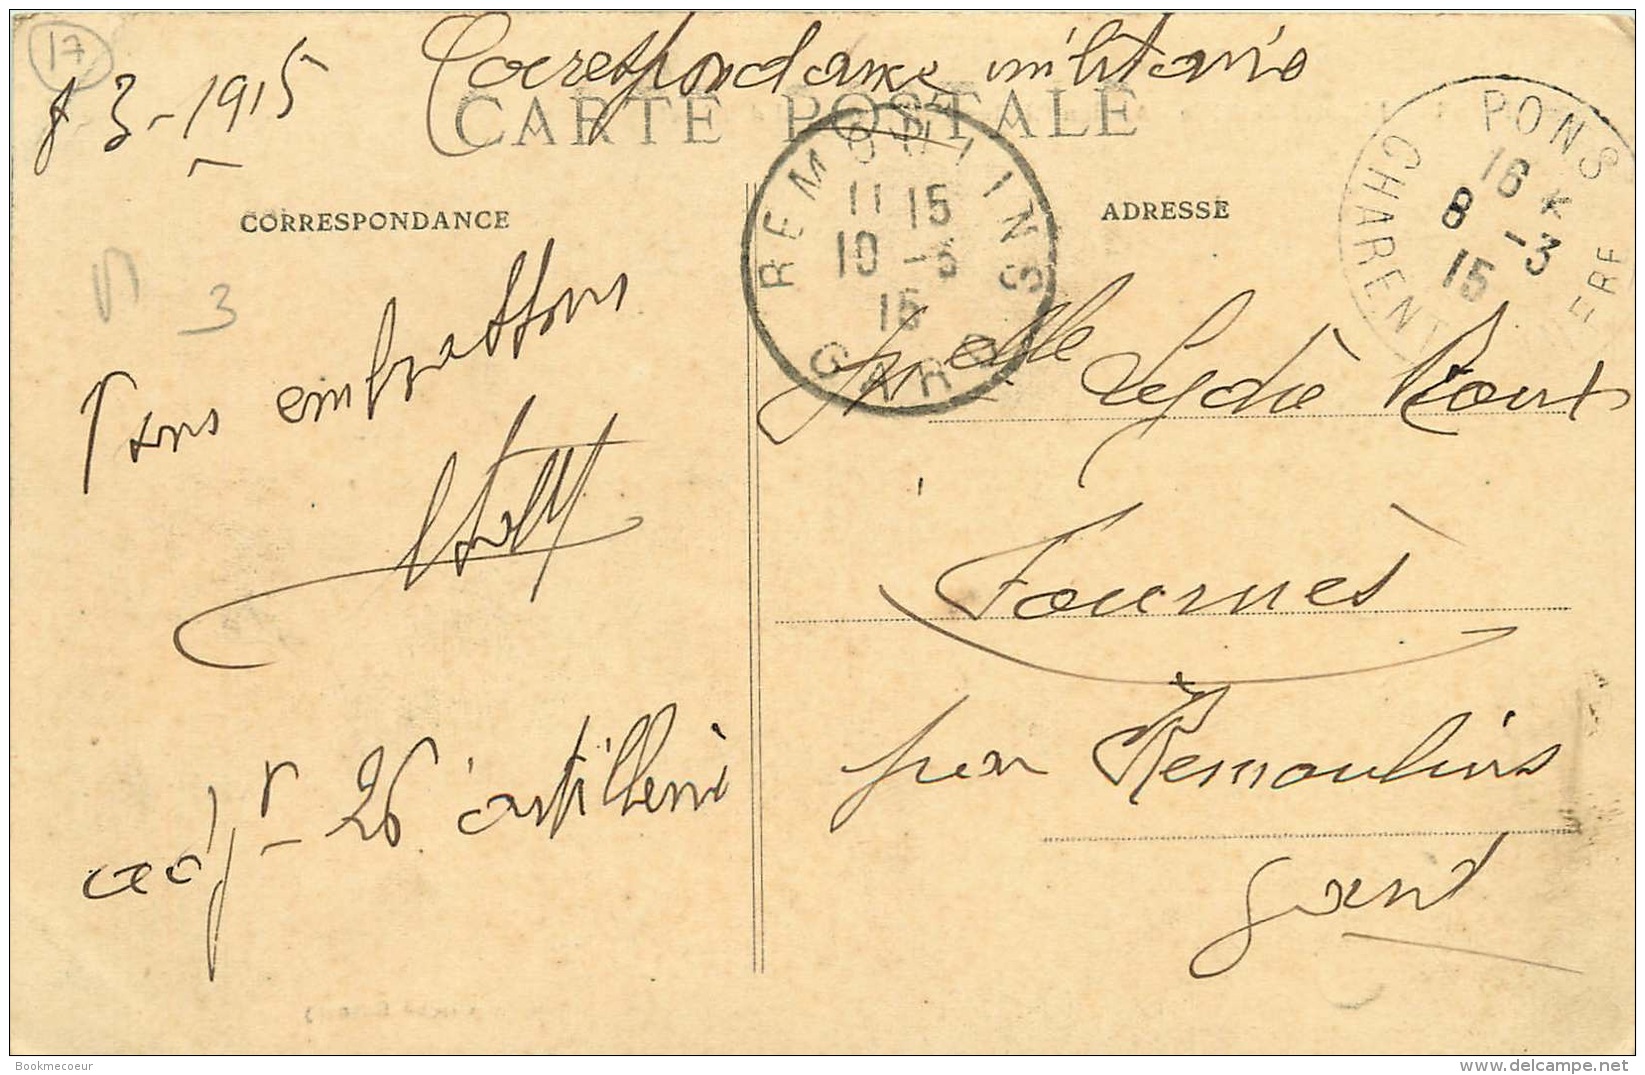 17
8 3-1915
Correspondance militaire
CARTE POSTALE
CORRESPONDANCE
ADRESSE
REMOULINS
11 15
10 -3
15
GARD
PONS
16
8 -3
15
CHARENTE
3
embrassons
26 artillerie
Melle Lydie
Fournès
par Remoulins
Gard
Bookmecoeur
delcampe.net